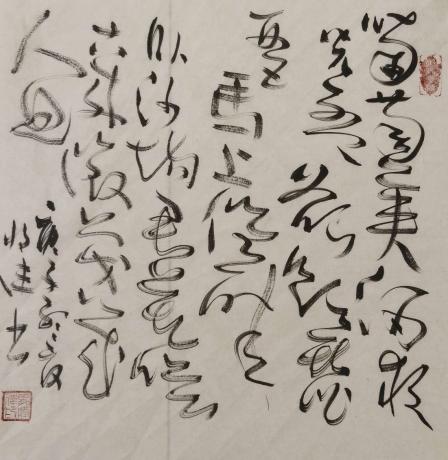 葡萄美酒夜
光杯欲飲琵
琶馬上催醉
卧沙場君莫笑
古来征戰幾
人回
庚子
書